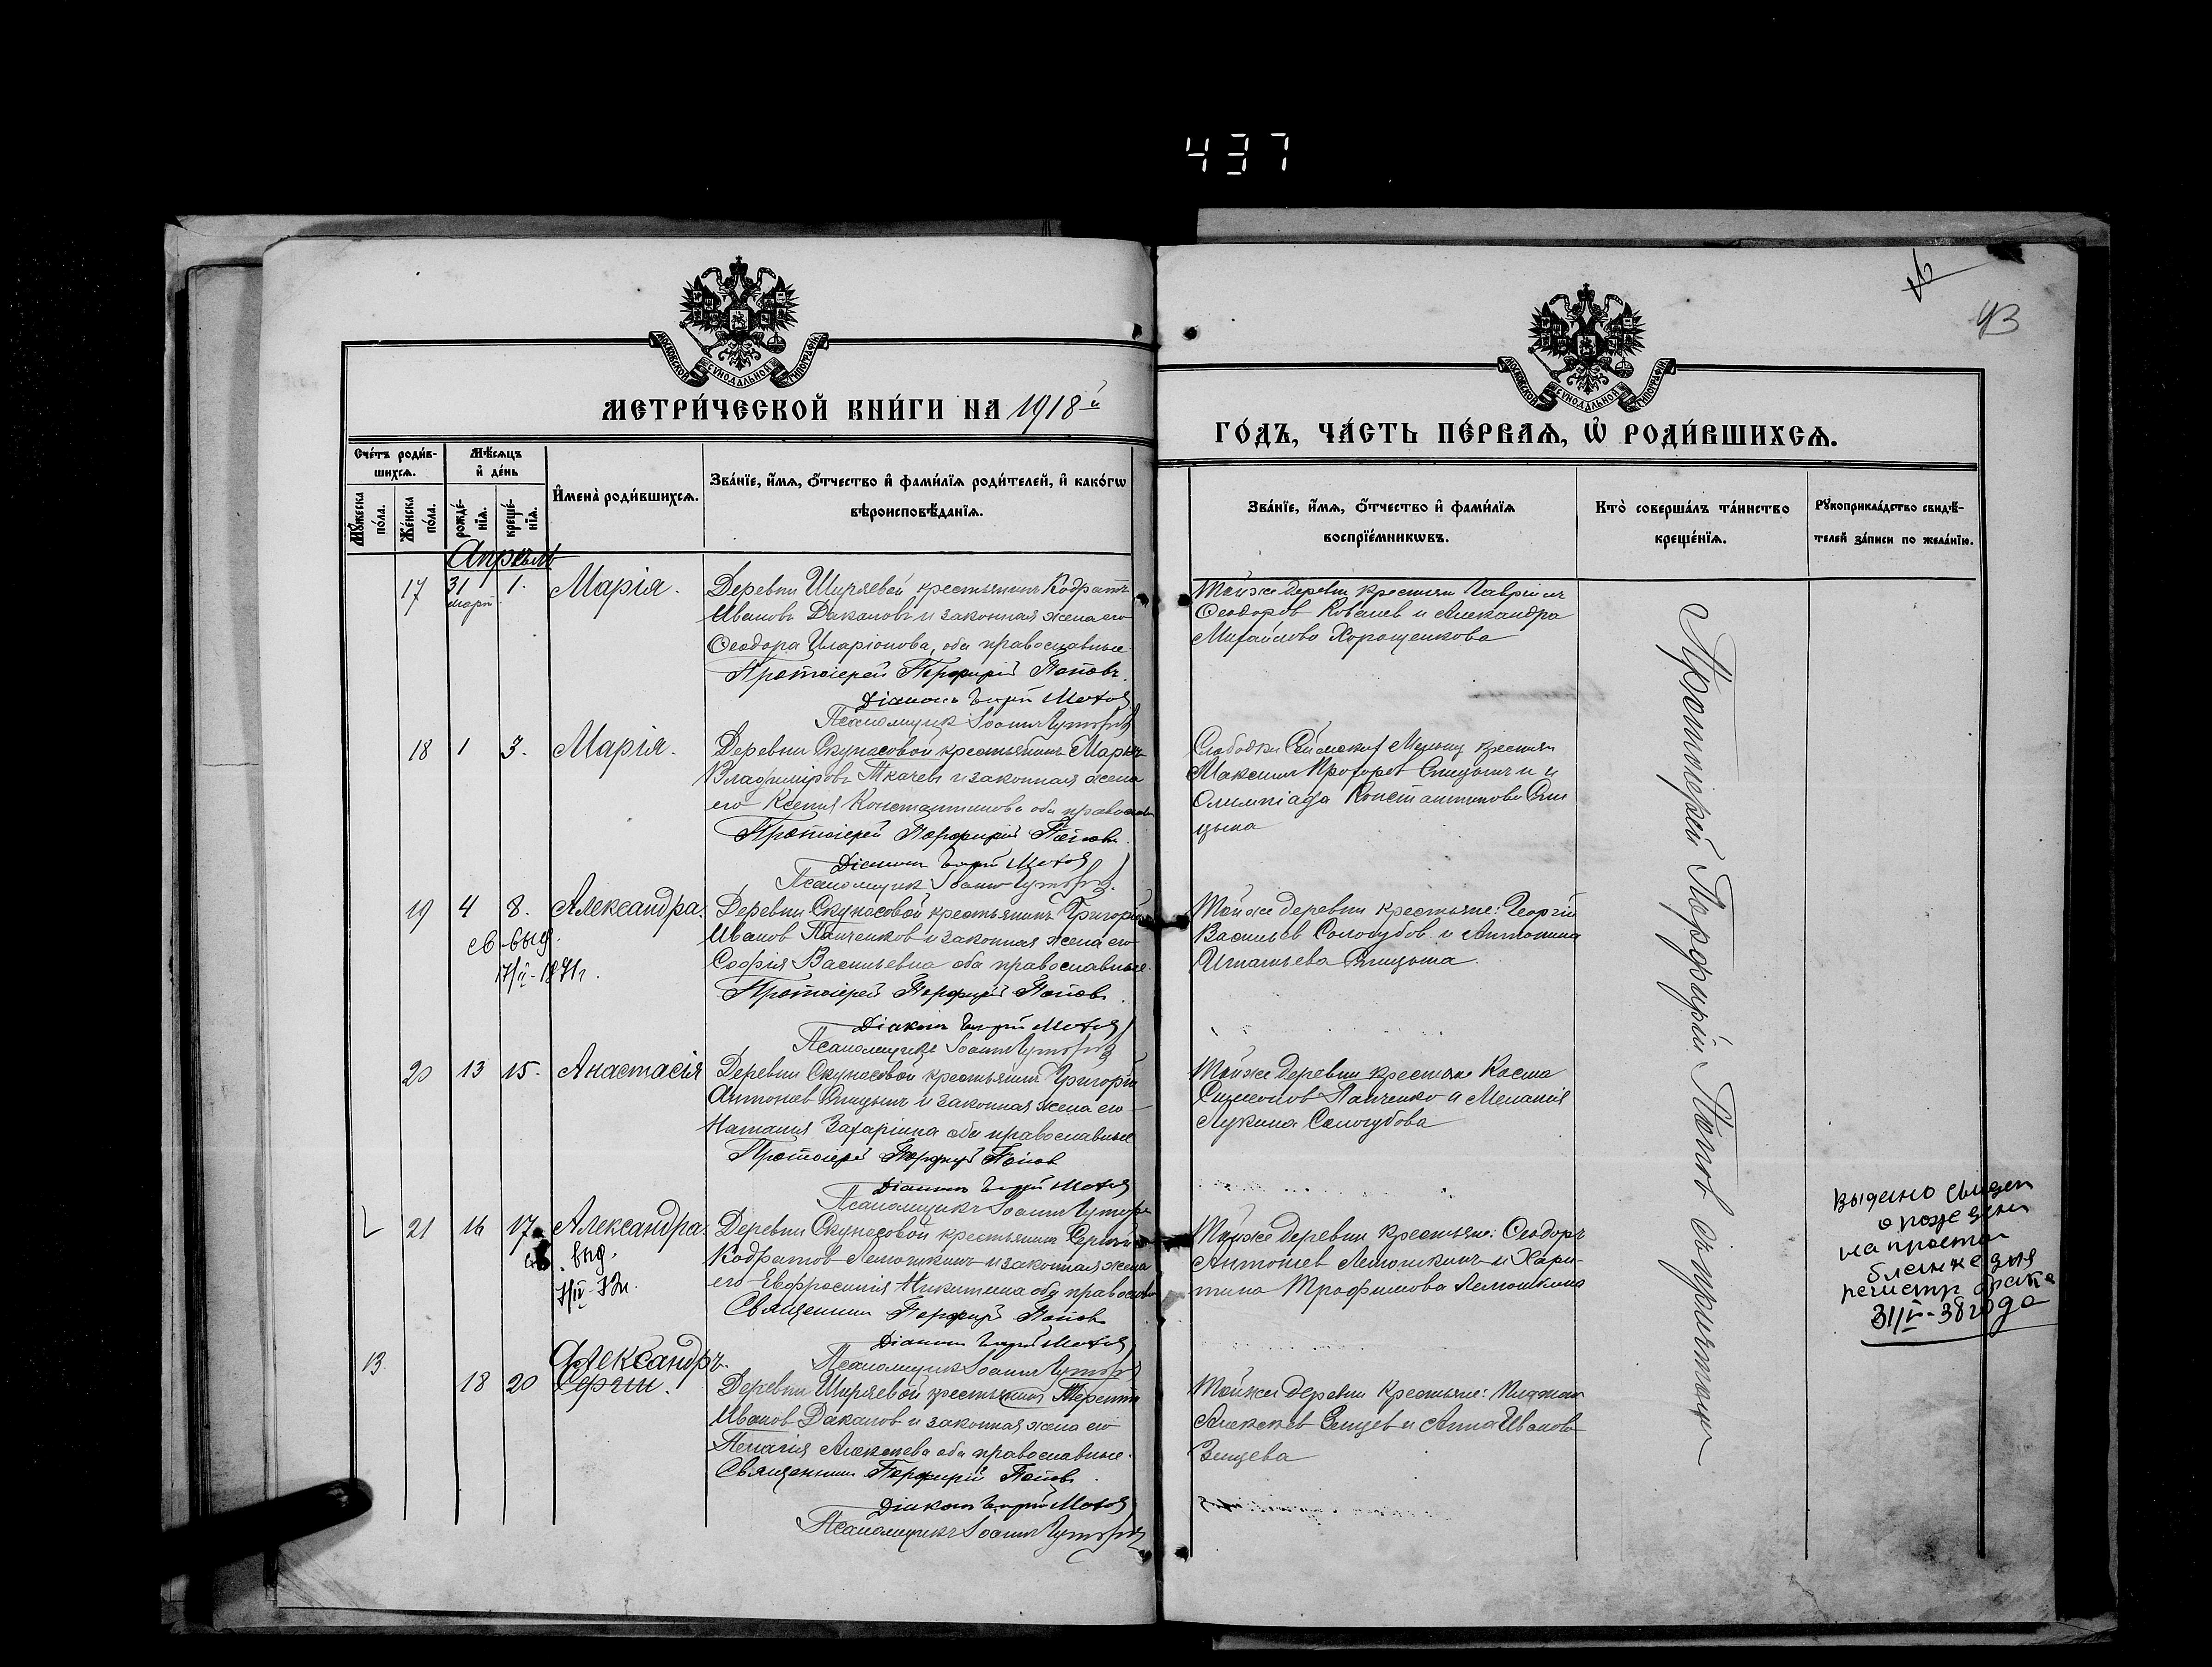 437
43
МОСКОВСКОЙ СѴНОДАЛЬНОЙ ТИПОГРАФІИ
МОСКОВСКОЙ СѴНОДАЛЬНОЙ ТИПОГРАФІИ
МЕТРИ́ЧЕСКОЙ КНИ́ГИ НА 1918й
ГО́ДЪ, ЧА́СТЬ ПЕ́РВАѦ, Ѡ҆ РОДИ́ВШИХСѦ.
Сче́тъ роди́в-
шихсѧ.
Мꙋжеска по́ла.
Же́нска по́ла.
Мѣ́сѧцъ
и҆ де́нь
рожде́-нїѧ.
креще́-нїѧ.
И҆мена̀ роди́вшихсѧ.
Зва́нїе, и҆́мѧ, ѻ҆́тчество и҆ фами́лїѧ роди́телей, и҆ како́гѡ
вѣроисповѣ́данїѧ.
Зва́нїе, и҆́мѧ, ѻ҆́тчество и҆ фами́лїѧ
воспрїе́мникѡвъ.
Кто̀ соверша́лъ та́инство
креще́нїѧ.
Рꙋкоприкла́дство свидѣ́-
телей за́писи по жела́нїю.
Апрѣль
17 31 март 1. Марія.
Деревни Ширяевой крестьянинъ Кодратъ
Ивановъ Дакановъ и законная жена его
Ѳеодора Иларіонова, оба православные
Протоіерей Порфирій Поповъ.
Діаконъ
Псаломщик Іоанн
Тойже деревни крестьяне Гавріилъ
Ѳеодоров Ковалев и Александра
Михайлова Хорошенкова
18 1 3. Марія.
Деревни Скунасовой крестьянинъ Маркъ
Владиміровъ Ткачевъ и законная жена
его Ксенія Константинова оба православн
Протоіерей Порфирій Попов.
Діаконъ
Псаломщик Іоанн
Слободки крестьян
Максим Прохоров Спицынъ и
Олимпіада Константинова Спи
цына
19 4 8. Александра.
св. выд.
Деревни Скунасовой крестьянинъ Григорій
Иванов Панченков и законная жена его
Софія Васильевна оба православные.
Протоіерей Порфирій Попов.
Діаконъ
Псаломщикъ Іоанн
Тойже деревни крестьяне: Георгій
Васильев Сологубов и Антонина
Игнатьева Спицына.
20 13 15. Анастасія
Деревни Скунасовой крестьянин Григорій
Антонов Спицынъ и законная жена его
Наталия Захаріина оба православные
Протоіерей Порфирій Попов
Діаконъ
Псаломщикъ Іоанн
Тойже деревни крестьяне Косма
Симеонов Панченко и Меланія
Лукина Сологубова
21 16 17. Александра.
выд.
Деревни Скунасовой крестьянинъ Сергій
Кодратов Лемошкинъ и законная жена
его Евфросинія Никитина оба православ
Священник Порфирій Попов
Діаконъ
Псаломщик Іоанн
Тойже деревни крестьяне: Ѳеодоръ
Антонов Лемошкинъ и Хари-
тина Трофимова Лемошкина
Выдано свидет
о рожден
на простом
бланке для
регистр брака
31/I-38 года
13. 18 20 Александръ.
Сергій.
Деревни Ширяевой крестьянин Терентій
Иванов Даканов и законная жена его
Пелагія Алексѣева оба православные.
Священник Порфирій Попов.
Діаконъ
Псаломщикъ Іоанн
Тойже деревни крестьяне:
Алексѣев Зенцев и Анна Иванова
Зенцева
Протоіерей Порфирій Попов съ причтомъ